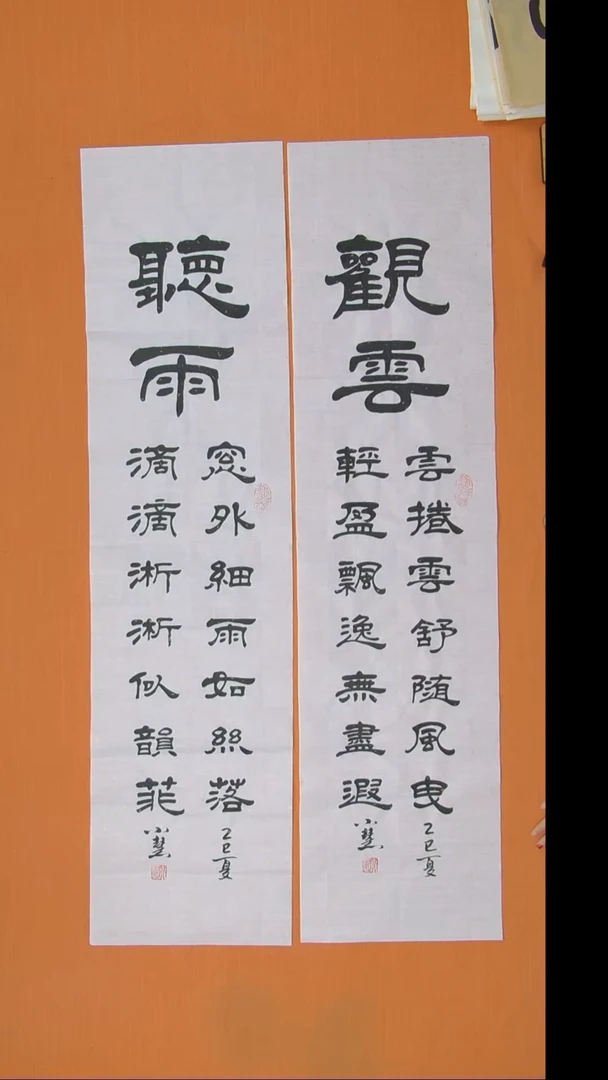 觀雲
雲捲雲舒隨風曳
輕盈飄逸無盡遐
乙巳夏
聽雨
窓外細雨如絲落
滴滴淅淅似韻菲
乙巳夏